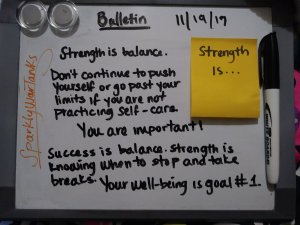 Bulletin
11/19/17
SparklyWarTanks
Strength is balance.
Strength
is...
Don't continue to push
yourself or go past your
limits if you are not
practicing self-care.
You are important!
Success is balance. Strength is
knowing when to stop and take
breaks. Your well-being is goal #1.